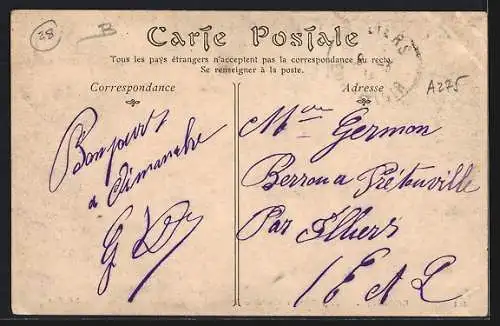 28
B
Carte Postale
Tous les pays étrangers n'acceptent pas la correspondance au recto.
Se renseigner à la poste.
Correspondance
Adresse
A275
Bonjours
a Dimanche
Mme Germon
Par Illiers
E et L